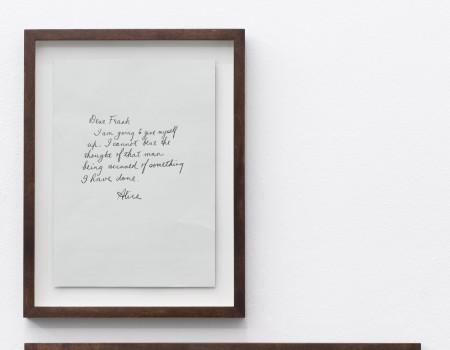 Dear Frank
I am going to give myself
up. I cannot bear the
thought of that man
being accused of something
I have done.
Alice